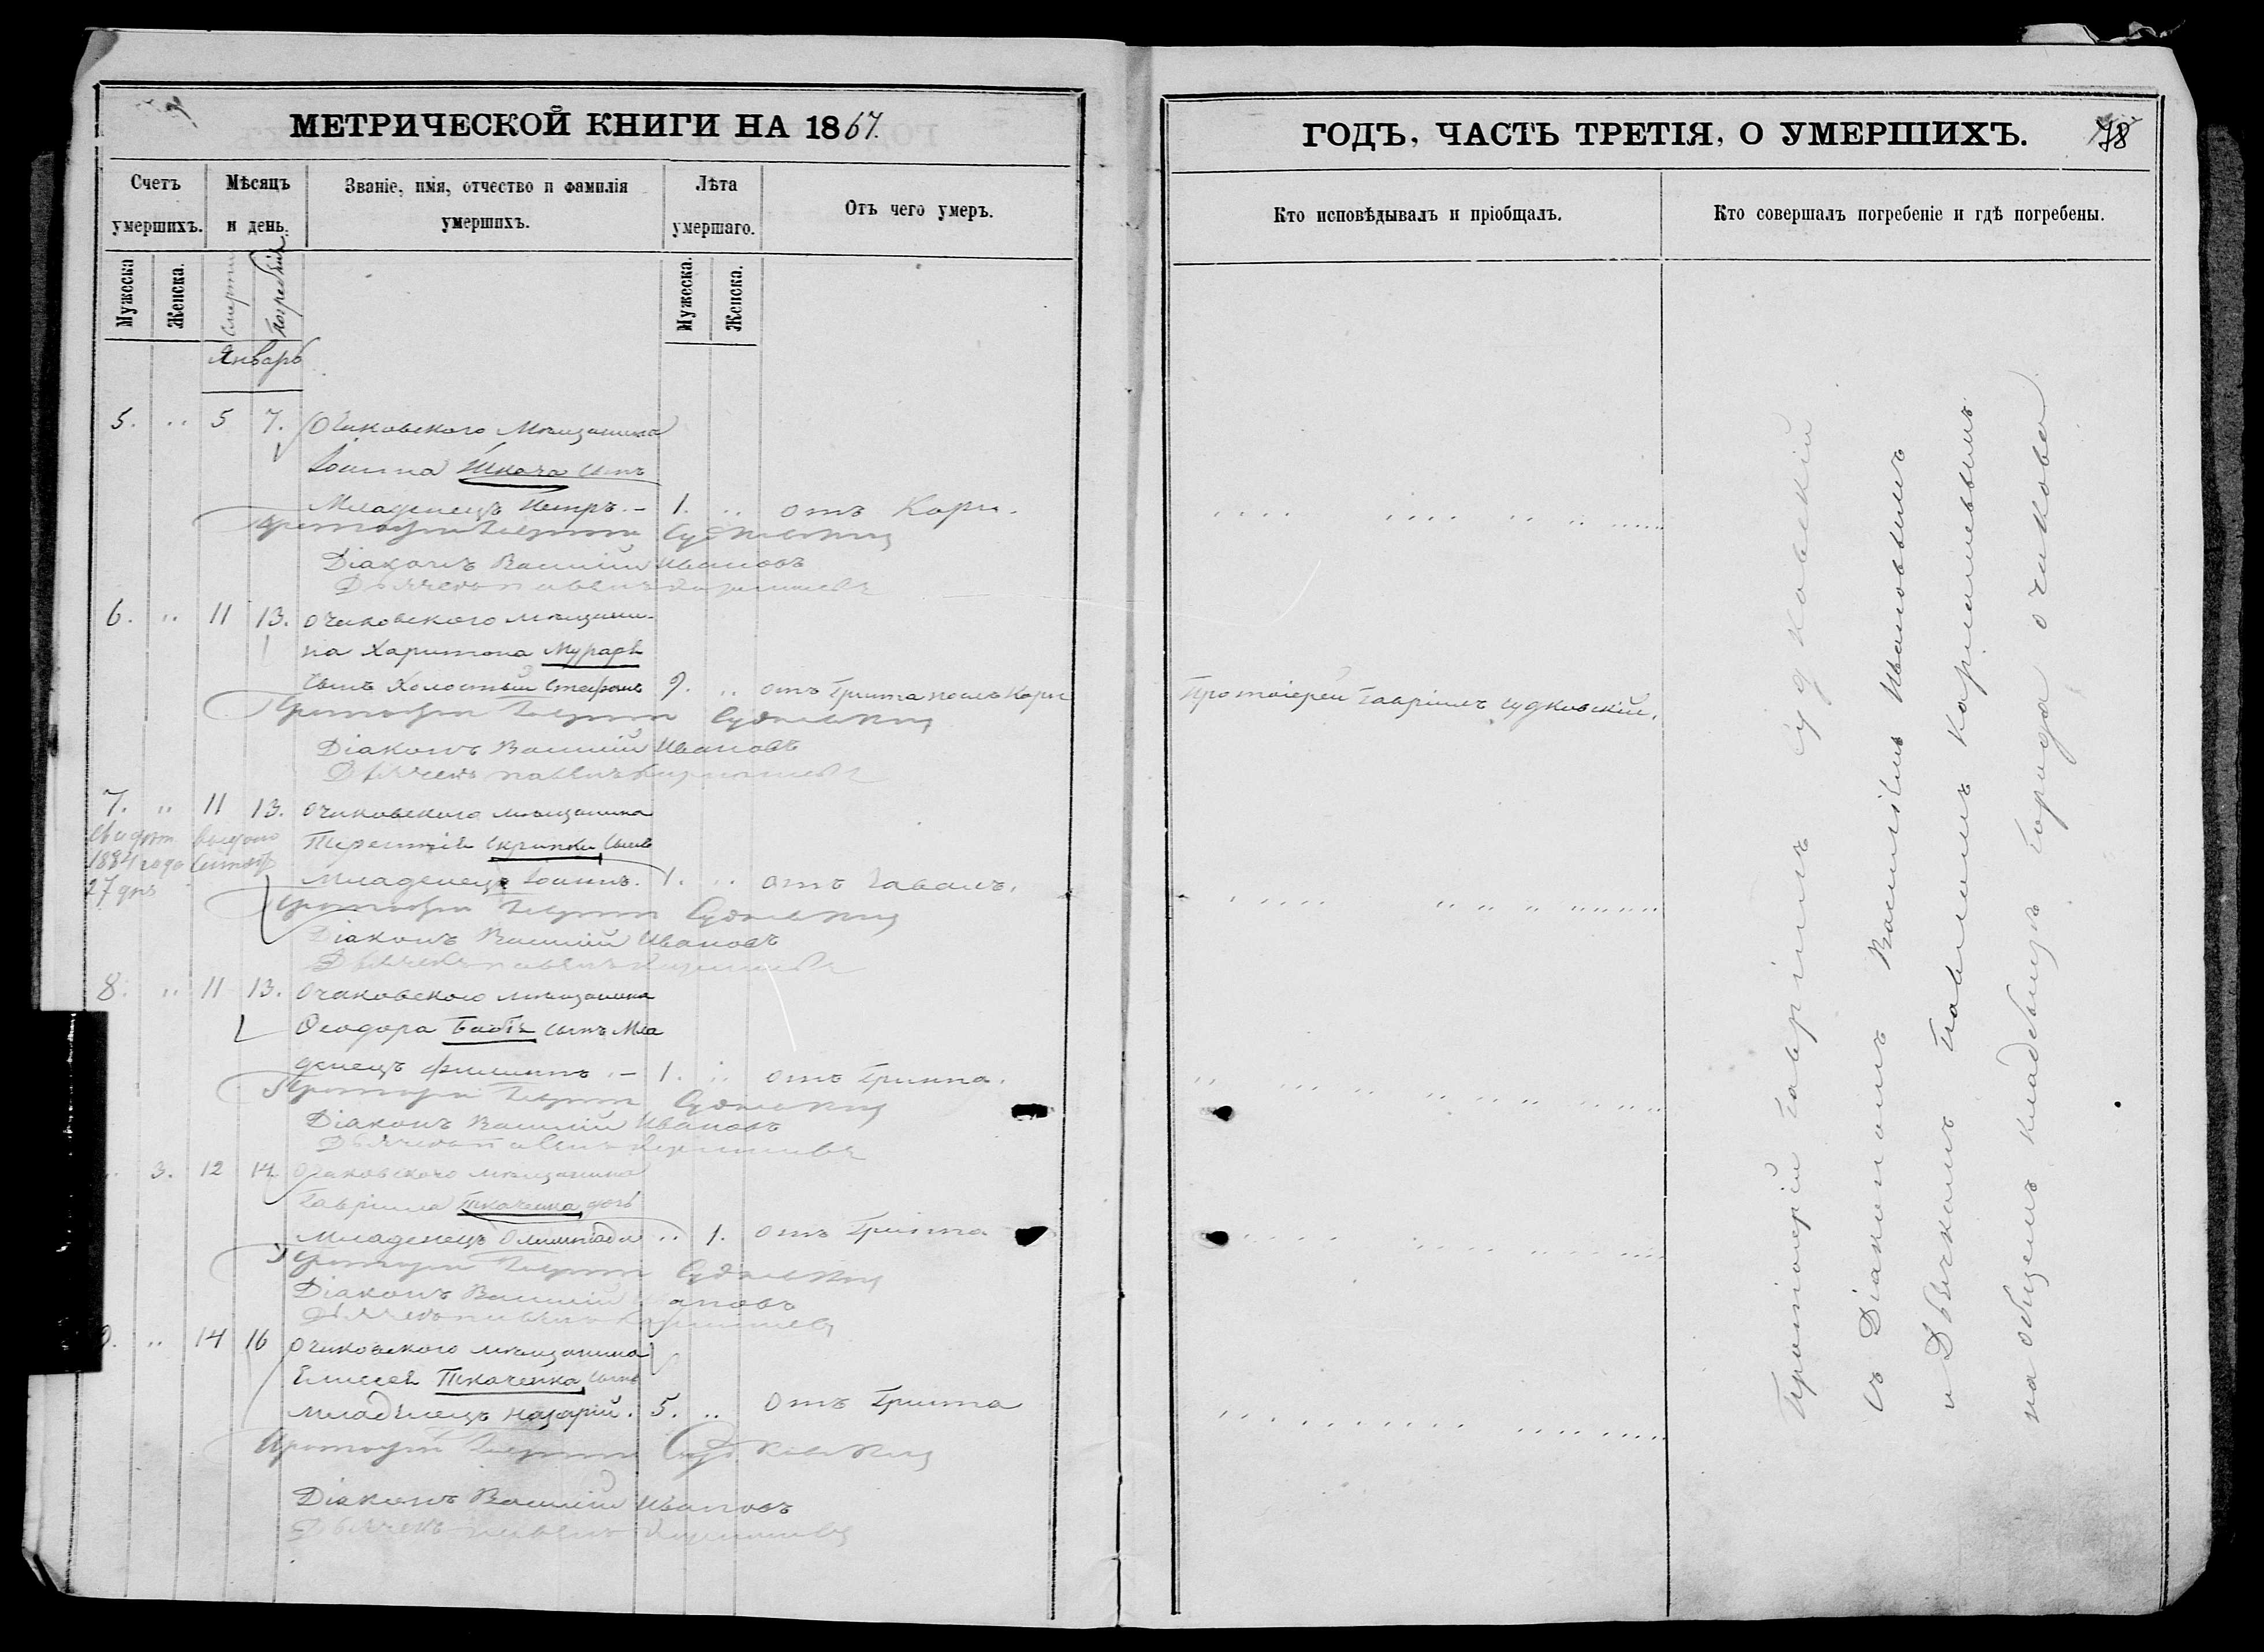 МЕТРИЧЕСКОЙ КНИГИ НА 1867.
Счетъ умершихъ.
Мѣсяцъ и день.
Званіе, имя, отчество и фамилія умершихъ.
Лѣта умершаго.
Отъ чего умеръ.
Мужеска
Женска.
Смерти
Погребенія
Мужеска.
Женска.
Январь
5. .. 5 7. Очаковскаго Мѣщанина
Іоанна Ткача сынъ
Младенецъ Петръ. – 1. .. отъ Кори.
Протоіерей Гавріилъ Судковскій
Діаконъ Василій Ивановъ
Дьячекъ Павелъ
6. .. 11 13. Очаковскаго мѣщани-
на Харитона Мураря
сынъ холостый Стефанъ 9. .. отъ Грипа послѣ Кори
Протоіерей Гавріилъ Судковскій
Діаконъ Василій Ивановъ
Дьячекъ Павелъ
7. .. 11 13. Очаковскаго мѣщанина
Терентія Скрипки, сынъ
Младенецъ Іоаннъ. 1. ..
Свидѣт выдано
1884 года Сентяб
27 дня
Протоіерей Гавріилъ Судковскій
Діаконъ Василій Ивановъ
Дьячекъ Павелъ
8. .. 11 13. Очаковскаго мѣщанина
Ѳеодора Бабія сынъ Мла
денецъ Филиппъ. – 1. .. отъ Грипа.
Протоіерей Гавріилъ Судковскій
Діаконъ Василій Ивановъ
Дьячекъ Павелъ
3. 12 14 Очаковскаго мѣщанина
Гавріила Ткаченка, дочь
Младенецъ Олимпіада .. 1. отъ Грипа
Протоіерей Гавріилъ Судковскій
Діаконъ Василій Ивановъ
Дьячекъ Павелъ
.. 14 16 Очаковскаго мѣщанина
Елисея Ткаченка, сынъ
младенецъ Назарій. 5. .. Отъ Грипа
Протоіерей Гавріилъ Судковскій
Діаконъ Василій Ивановъ
Дьячекъ Павелъ
ГОДЪ, ЧАСТЬ ТРЕТІЯ, О УМЕРШИХЪ.
78
Кто исповѣдывалъ и пріобщалъ.
Кто совершалъ погребеніе и гдѣ погребены.
Протоіерей Гавріилъ Судковскій.
Протоіерей Гавріилъ Судковскій
съ Діакономъ Василіемъ Ивановымъ
и Дьячкомъ Павломъ
на общемъ кладбищѣ города Очакова